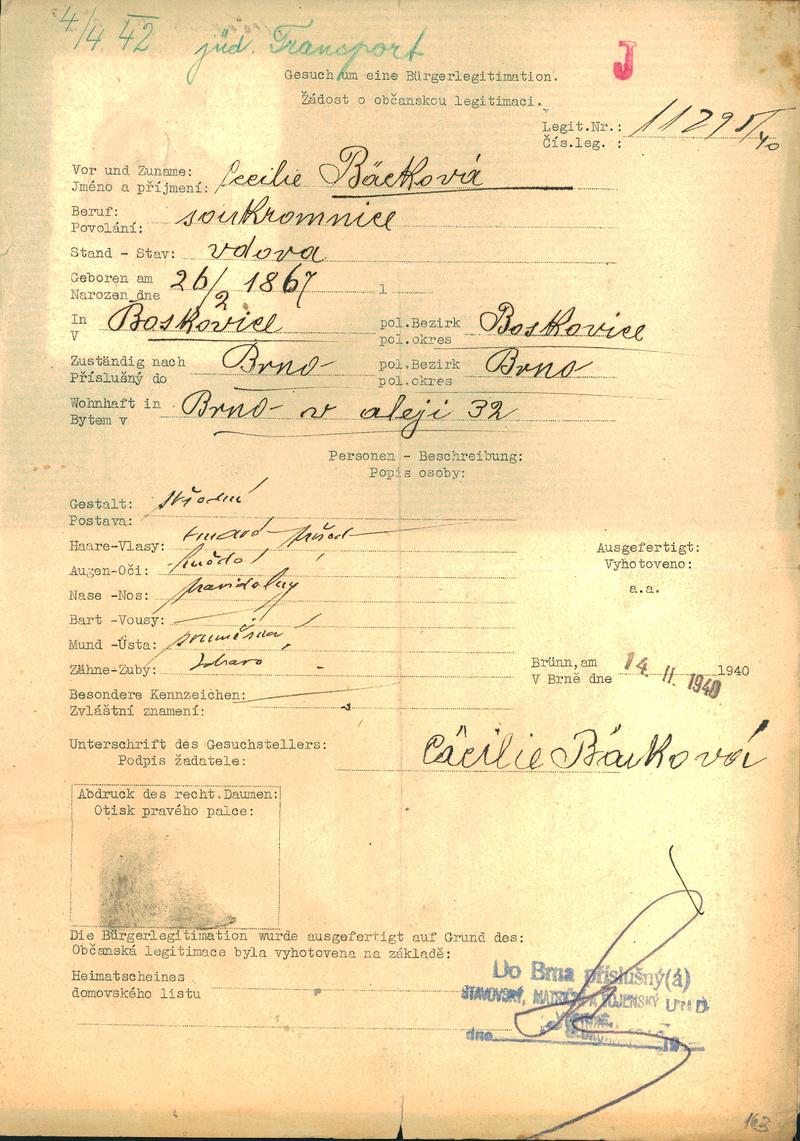 4/4 42 jüd. Transport
J
Gesuch um eine Bürgerlegitimation.
Žádost o občanskou legitimaci.
Legit.Nr.: 11295/40
Čís.leg. :
Vor und Zuname: Cecilie Bäcková
Jméno a příjmení:
Beruf: soukromnice
Povolání:
Stand - Stav: vdova
Geboren am 26/2 1867 1
Narozen dne
In Boskovice pol.Bezirk Boskovice
V pol.okres
Zuständig nach Brno pol.Bezirk Brno
Příslušný do pol.okres
Wohnhaft in Brno v aleji 32
Bytem v
Personen - Beschreibung:
Popis osoby:
Gestalt: střední
Postava:
Haare-Vlasy:
Ausgefertigt:
Augen-Oči: hnědé
Vyhotoveno:
Nase -Nos: pravidelný
a.a.
Bart -Vousy:
Mund -Ústa: souměrná
Zähne-Zuby: zdravé
Brünn,am 14 II. 1940 1940
V Brně dne
Besondere Kennzeichen:
Zvláštní znamení:
Unterschrift des Gesuchstellers: Cäcilie Bäcková
Podpis žadatele:
Abdruck des recht.Daumen:
Otisk pravého palce:
Die Bürgerlegitimation wurde ausgefertigt auf Grund des:
Občanská legitimace byla vyhotovena na základě:
Heimatscheines
domovského listu
Do Brna příslušný(á)
STAVOVSKÝ, MATRIČNÍ A VOJENSKÝ ÚŘAD
dne 19
163